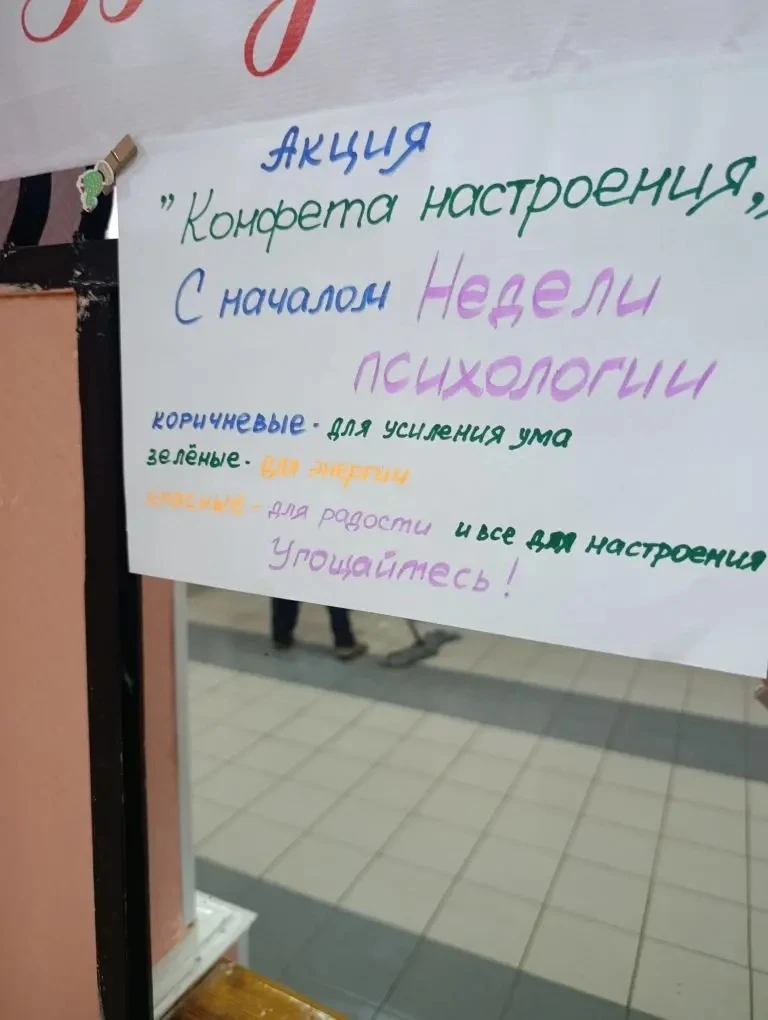 Акция
"Конфета настроения,,
С началом Недели
психологии
коричневые - для усиления ума
зелёные - для энергии
красные - для радости и все для настроения
Угощайтесь!